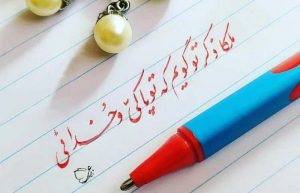 ملکا ذکر تو گویم که تو پاکی و خدائی